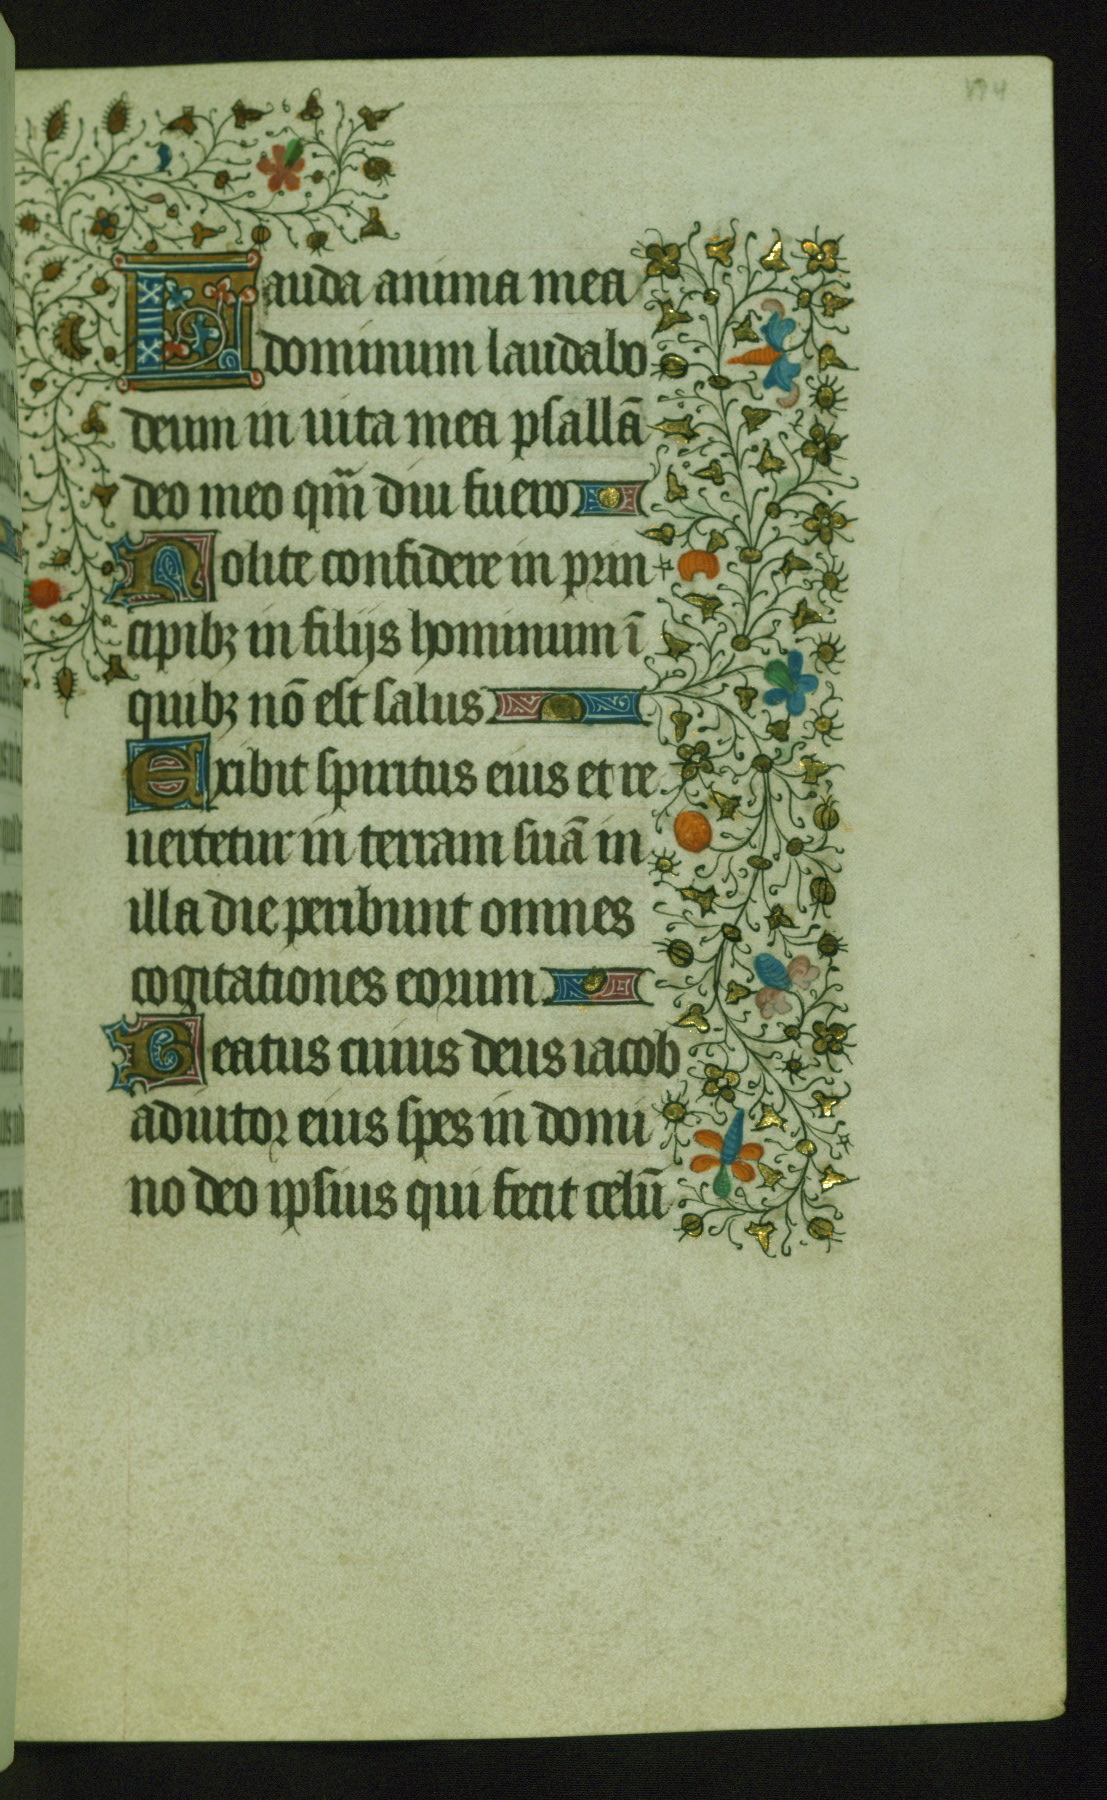 Lauda anima mea
dominum laudabo
deum in uita mea psallā
deo meo qm̄ diu fuero
Nolite confidere in prin
cipibꝫ in filijs hominum ī
quibꝫ nō est salus
Exibit spiritus eius et re
uertetur in terram suā in
illa die peribunt omnes
cogitationes eorum
Beatus cuius deus iacob
adiutor eius spes in domi
no deo ipsius qui fecit celū